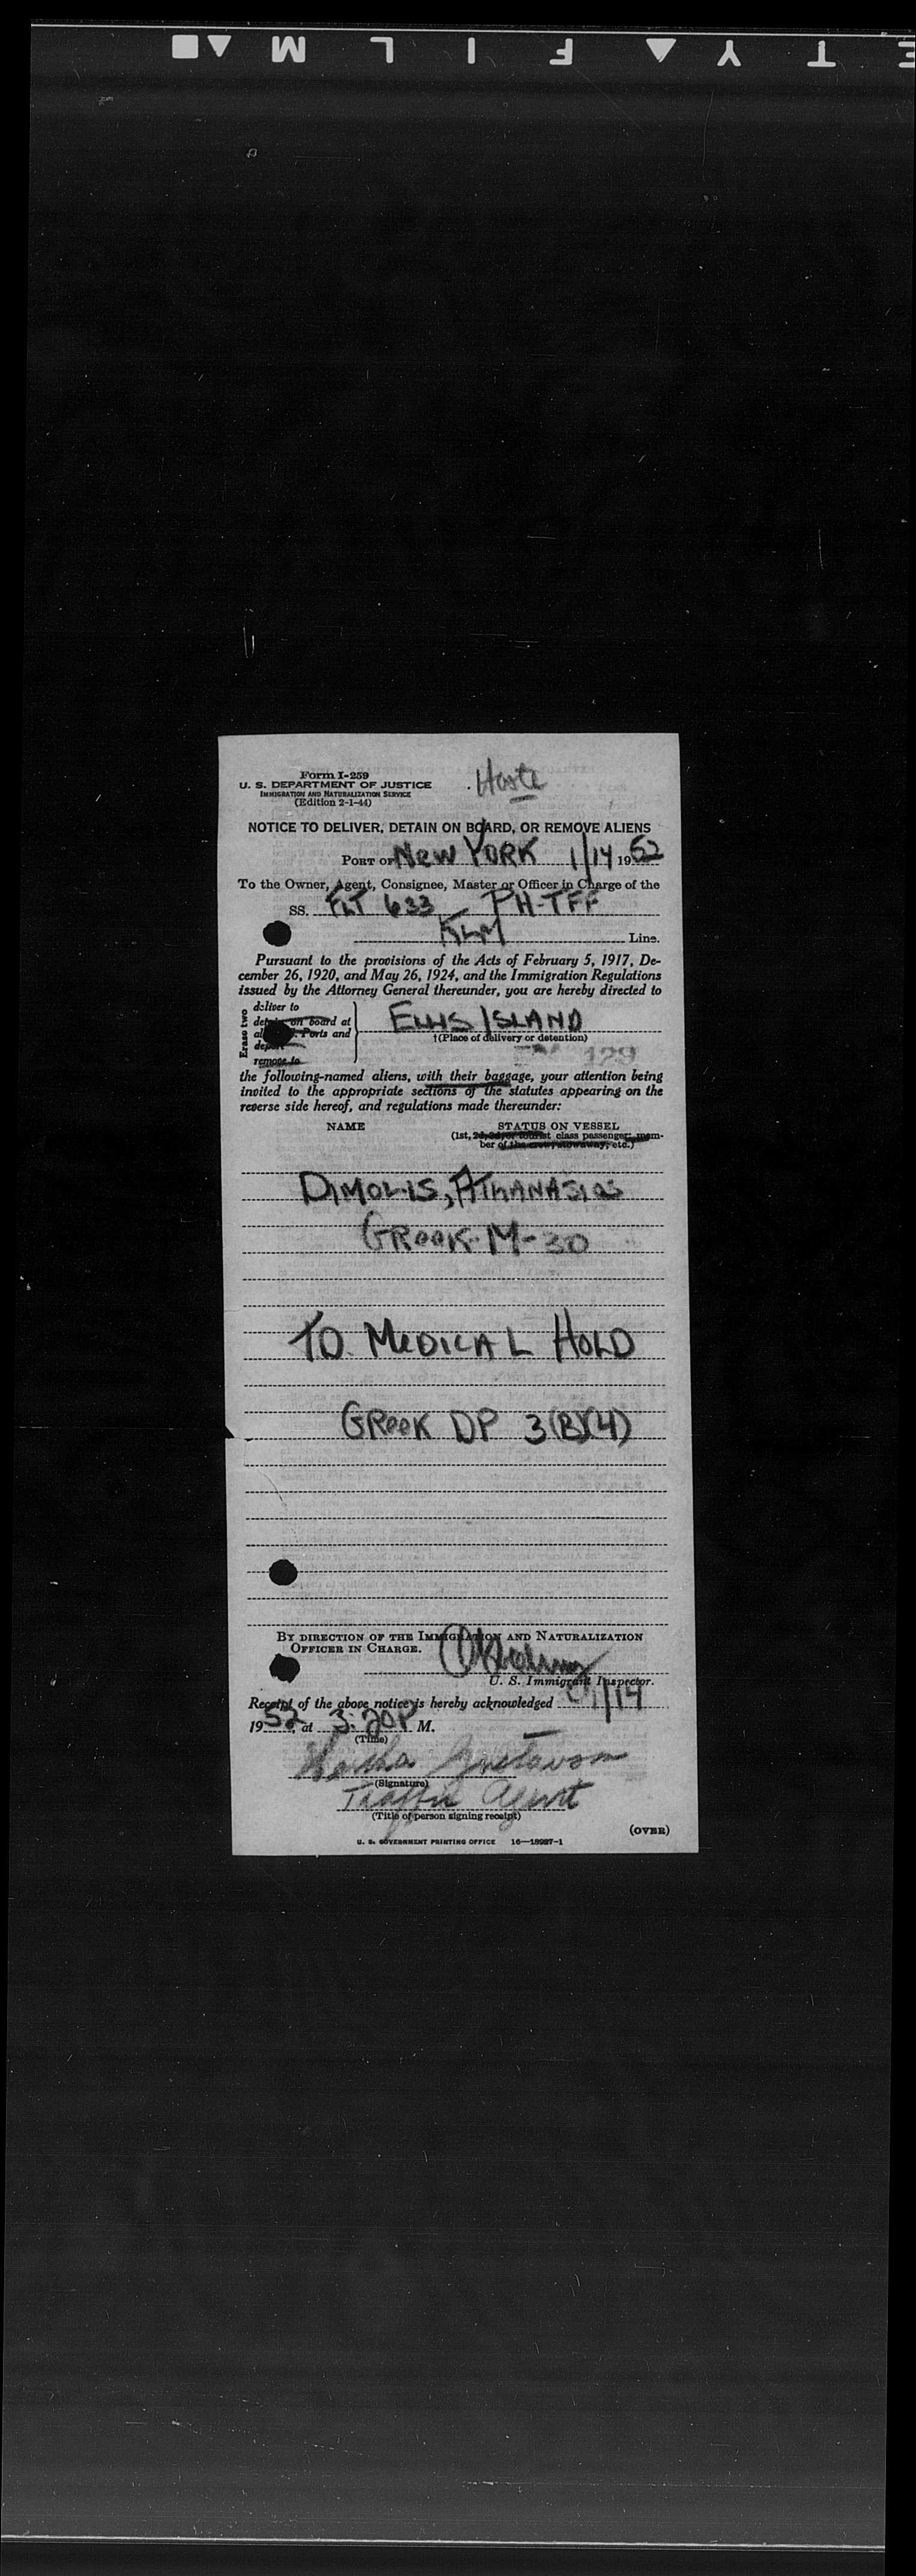 E T Y F I L M
Form I-259
U. S. DEPARTMENT OF JUSTICE
IMMIGRATION AND NATURALIZATION SERVICE
(Edition 2-1-44)
NOTICE TO DELIVER, DETAIN ON BOARD, OR REMOVE ALIENS
PORT OF NEW YORK 1/14 1952
To the Owner, Agent, Consignee, Master or Officer in Charge of the
SS. FLT 633 PH-TFF
KLM Line.
Pursuant to the provisions of the Acts of February 5, 1917, De-
cember 26, 1920, and May 26, 1924, and the Immigration Regulations
issued by the Attorney General thereunder, you are hereby directed to
Erase two
deliver to
on board at
Ports and
remove to
ELLIS ISLAND
†(Place of delivery or detention)
129
the following-named aliens, with their baggage, your attention being
invited to the appropriate sections of the statutes appearing on the
reverse side hereof, and regulations made thereunder:
NAME STATUS ON VESSEL
(1st, 2d, 3d, or tourist class passenger; mem-
ber of the crew, stowaway, etc.)
DIMOLIS, ATHANASIOS
GREEK-M-30
TO MEDICAL HOLD
GREEK DP 3(B)(4)
BY DIRECTION OF THE IMMIGRATION AND NATURALIZATION
OFFICER IN CHARGE.
U. S. Immigrant Inspector.
Receipt of the above notice is hereby acknowledged 1/14
1952, at 3:20P M.
(Time)
Gustavson
(Signature)
Traffic Agent
(Title of person signing receipt)
(OVER)
U. S. GOVERNMENT PRINTING OFFICE 16—18987-1